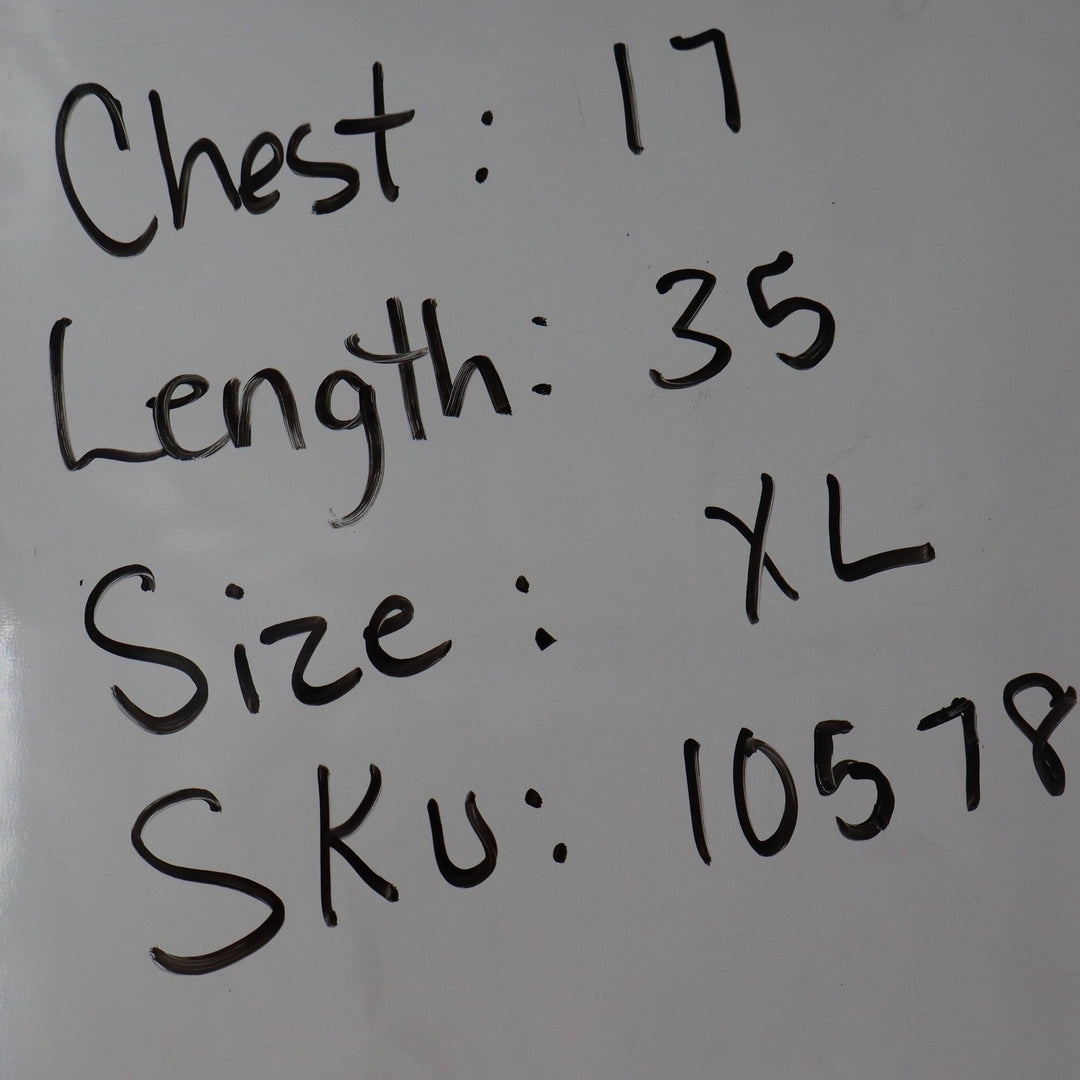 Chest: 17
Length: 35
Size: XL
SKU: 10578